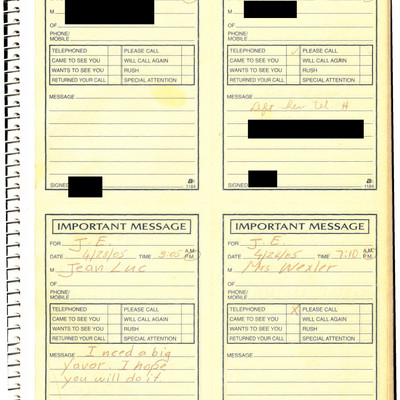 M
OF
PHONE/
MOBILE
TELEPHONED PLEASE CALL
CAME TO SEE YOU WILL CALL AGAIN
WANTS TO SEE YOU RUSH
RETURNED YOUR CALL SPECIAL ATTENTION
MESSAGE
SIGNED
1184
M
OF
PHONE/
MOBILE
TELEPHONED ✓ PLEASE CALL
CAME TO SEE YOU WILL CALL AGAIN
WANTS TO SEE YOU RUSH
RETURNED YOUR CALL SPECIAL ATTENTION
MESSAGE
her tel #
SIGNED
1184
IMPORTANT MESSAGE
FOR J. E.
DATE TIME A.M.
P.M.
M Jean Luc
OF
PHONE/
MOBILE
TELEPHONED PLEASE CALL
CAME TO SEE YOU WILL CALL AGAIN
WANTS TO SEE YOU RUSH
RETURNED YOUR CALL SPECIAL ATTENTION
MESSAGE I need a big
favor. I hope
you will do it.
IMPORTANT MESSAGE
FOR J. E.
DATE 4/26/05 TIME 7:10 A.M.
P.M.
M Mrs Wexler
OF
PHONE/
MOBILE
TELEPHONED X PLEASE CALL
CAME TO SEE YOU WILL CALL AGAIN
WANTS TO SEE YOU RUSH
RETURNED YOUR CALL SPECIAL ATTENTION
MESSAGE